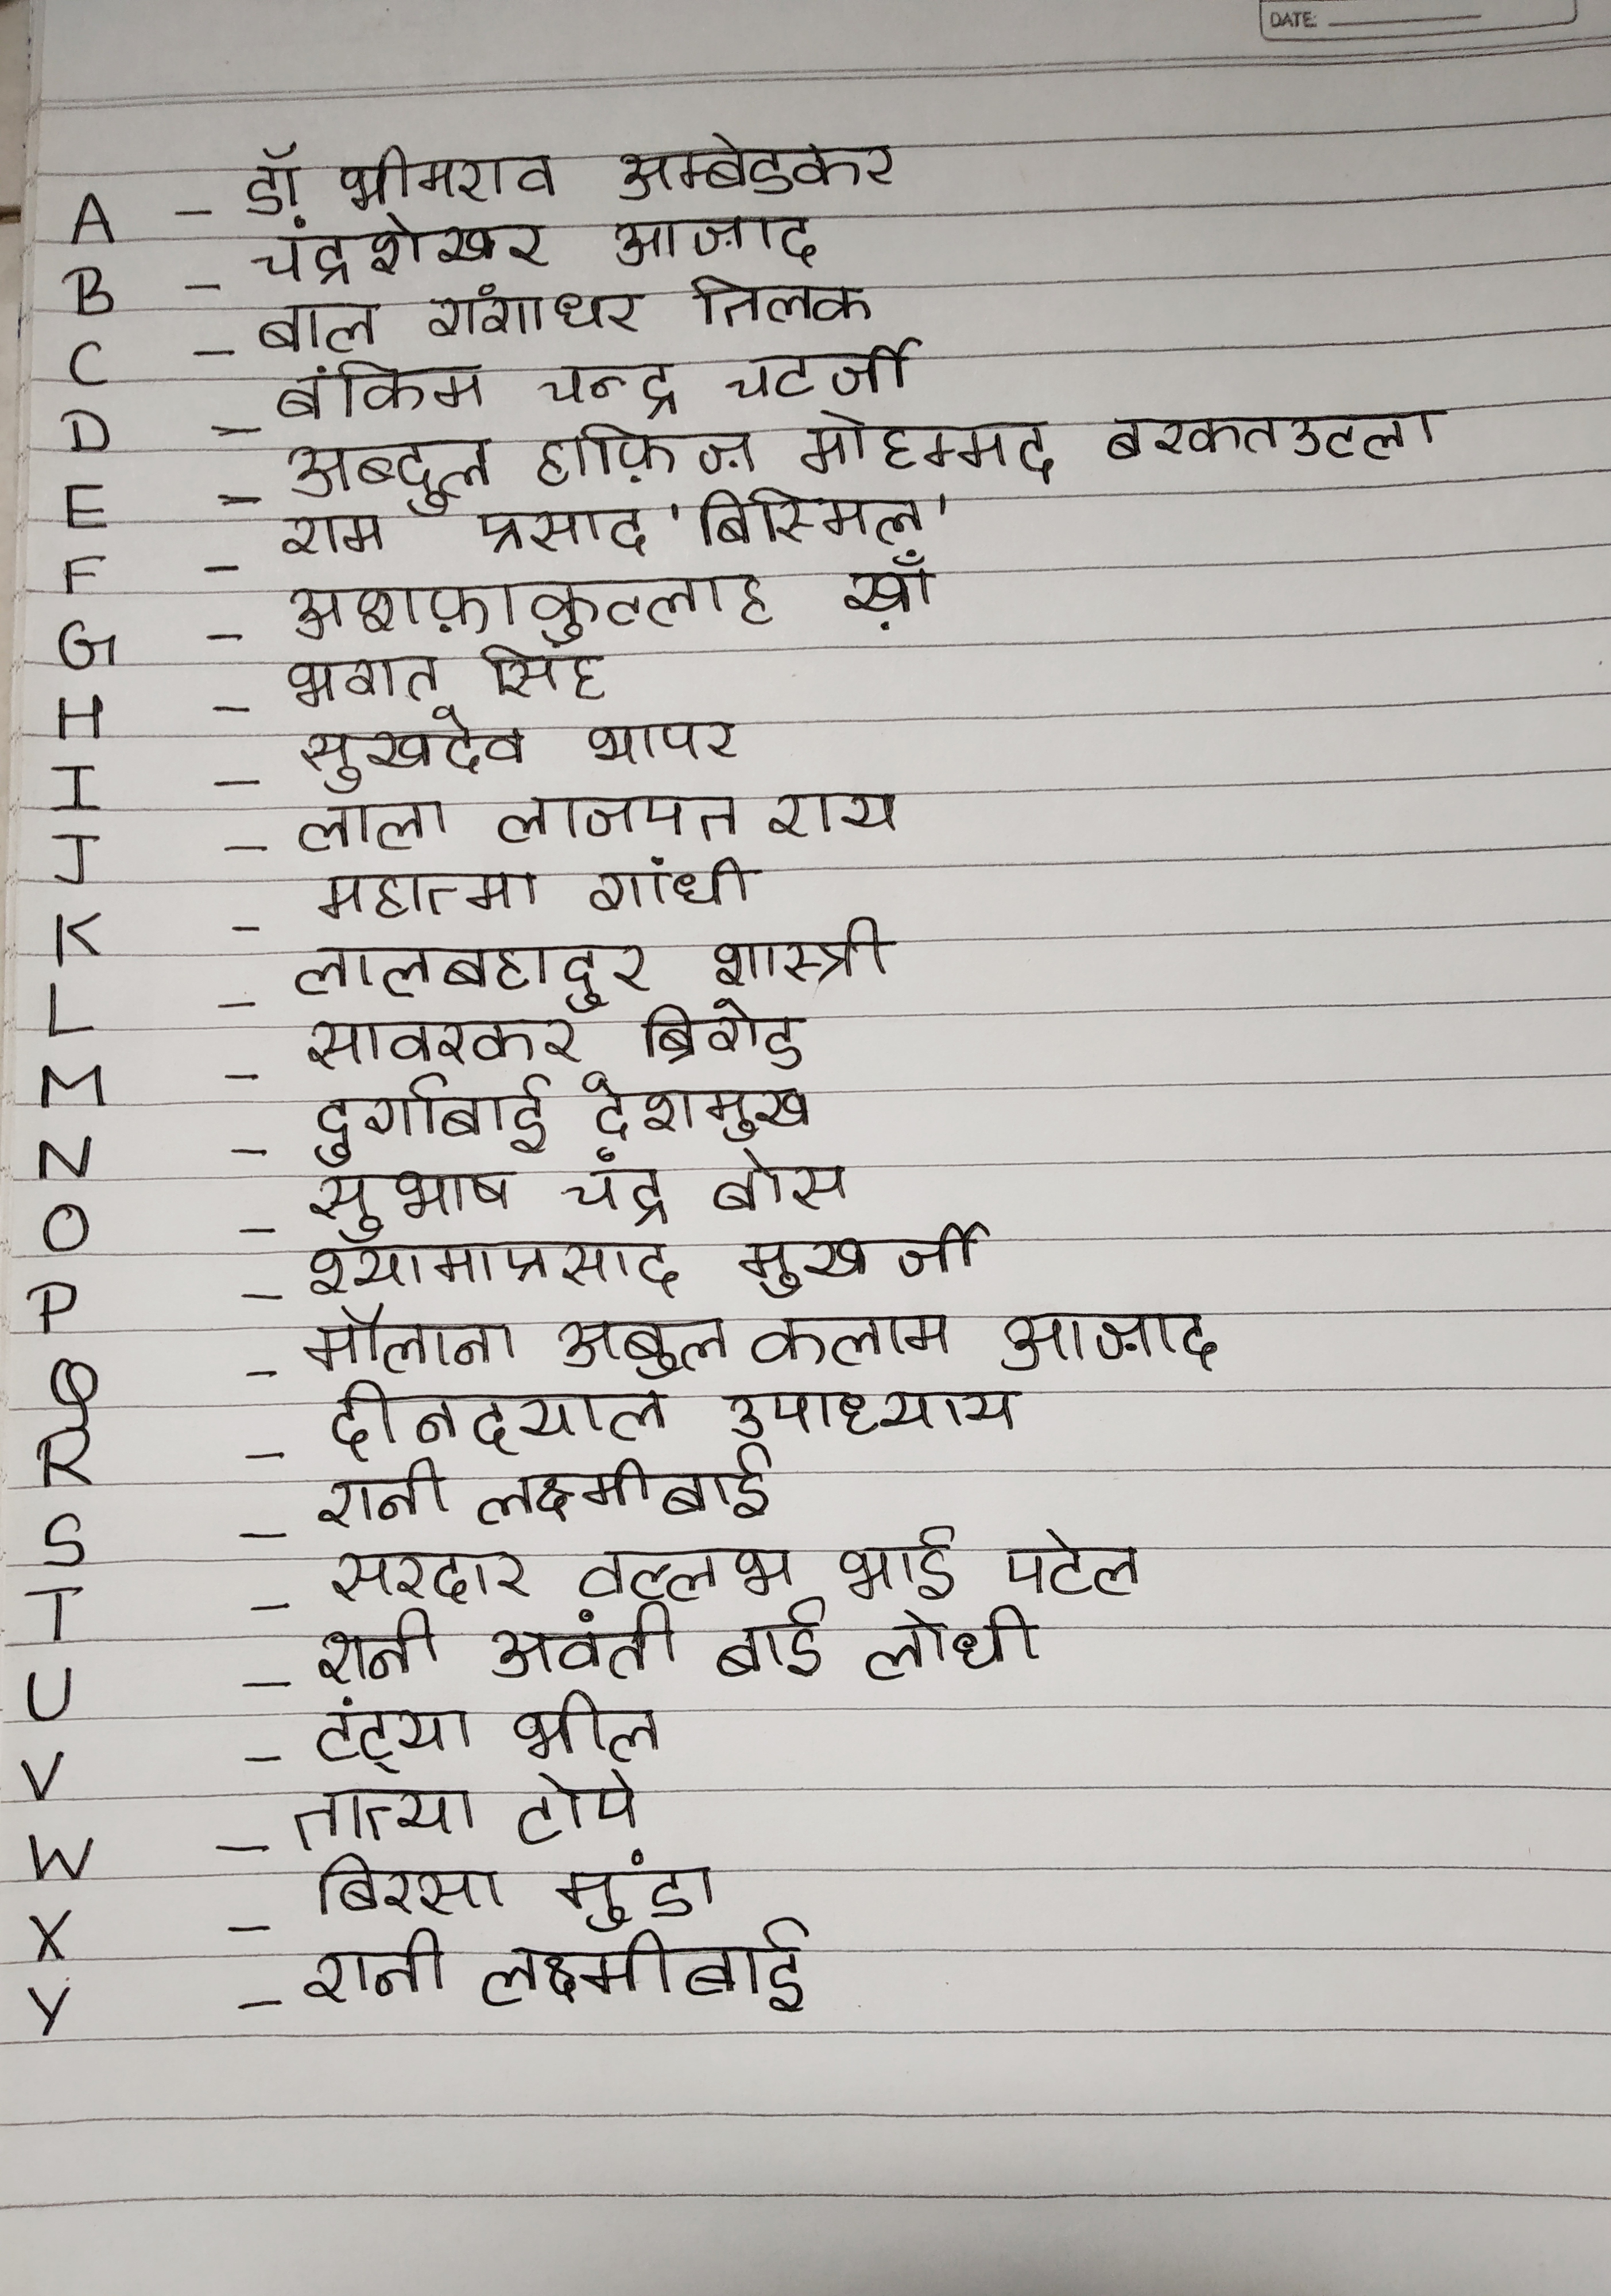 DATE:
A - डॉ. भीमराव अम्बेडकर
B - चंद्रशेखर आज़ाद
C - बाल गंगाधर तिलक
D - बंकिम चन्द्र चटर्जी
E - अब्दुल हाफ़िज़ मोहम्मद बरकतउल्ला
F - राम प्रसाद 'बिस्मिल'
G - अशफ़ाकुल्लाह ख़ाँ
H - भगत सिंह
I - सुखदेव थापर
J - लाला लाजपत राय
K - महात्मा गांधी
L - लालबहादुर शास्त्री
M - सावरकर ब्रिगेड
N - दुर्गाबाई देशमुख
O - सुभाष चंद्र बोस
P - श्यामाप्रसाद मुखर्जी
Q - मौलाना अबुल कलाम आज़ाद
R - दीनदयाल उपाध्याय
S - रानी लक्ष्मीबाई
T - सरदार वल्लभ भाई पटेल
U - रानी अवंती बाई लोधी
V - टंट्या भील
W - तात्या टोपे
X - बिरसा मुंडा
Y - रानी लक्ष्मीबाई